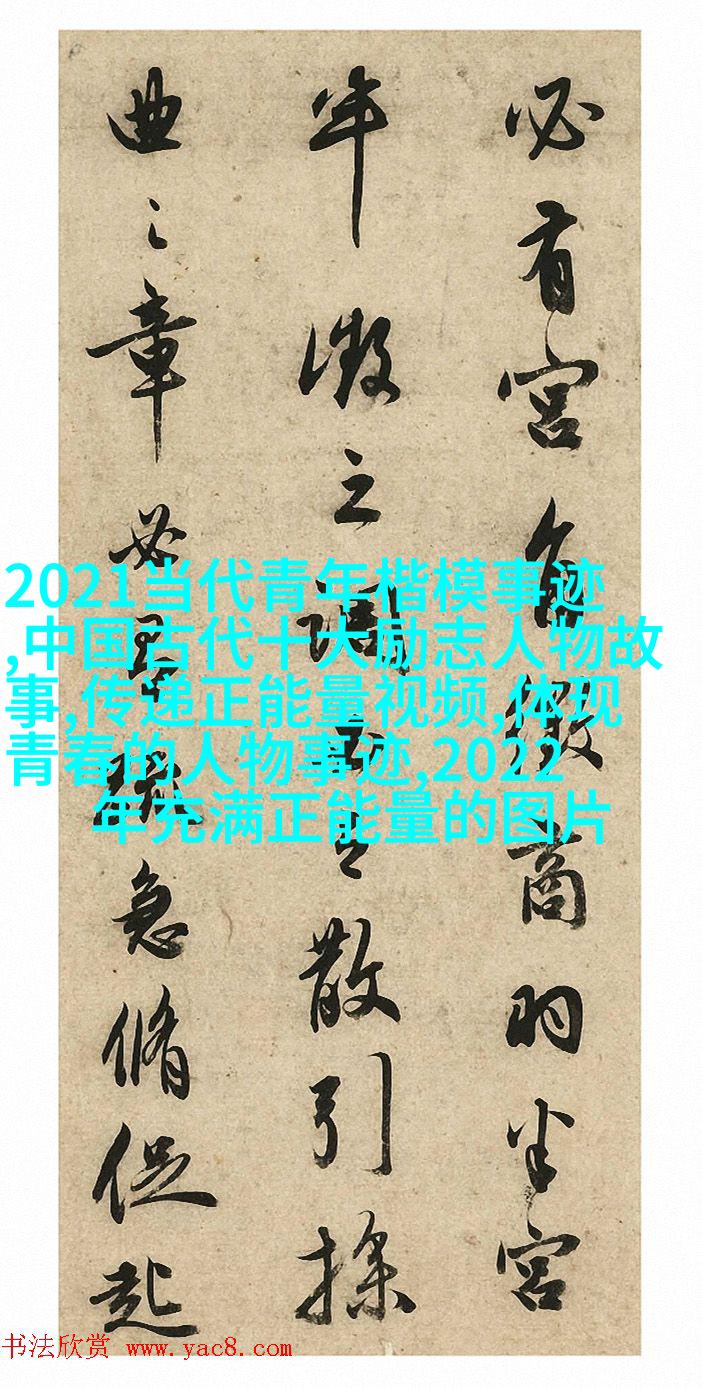 必有宫角徵商羽半宫
半徵之調之散引操
曲之章必急脩促起
2021当代青年楷模事迹
,中国古代十大励志人物故
事,传递正能量视频,体现
青春的人物事迹,2022
年充满正能量的图片
书法欣赏 www.yac8.com